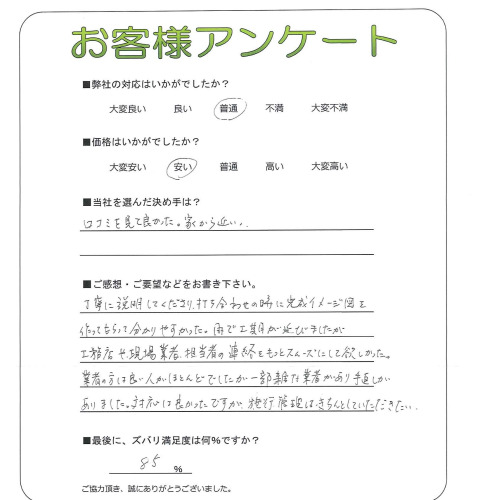 お客様アンケート
■弊社の対応はいかがでしたか？
大変良い 良い 普通 不満 大変不満
■価格はいかがでしたか？
大変安い 安い 普通 高い 大変高い
■当社を選んだ決め手は？
口コミを見て良かった。家から近い。
■ご感想・ご要望などをお書き下さい。
丁寧に説明してくださり、打ち合わせの時に完成イメージ図を
作ってもらって分かりやすかった。雨で工期が延びましたが
工務店や、現場業者、担当者の連絡をもっとスムーズにして欲しかった。
業者の方は良い人がほとんどでしたが一部雑な業者があり手直しが
ありました。対応は良かったですが、施行管理はきちんとしていただきたい。
■最後に、ズバリ満足度は何%ですか？
85 %
ご協力頂き、誠にありがとうございました。